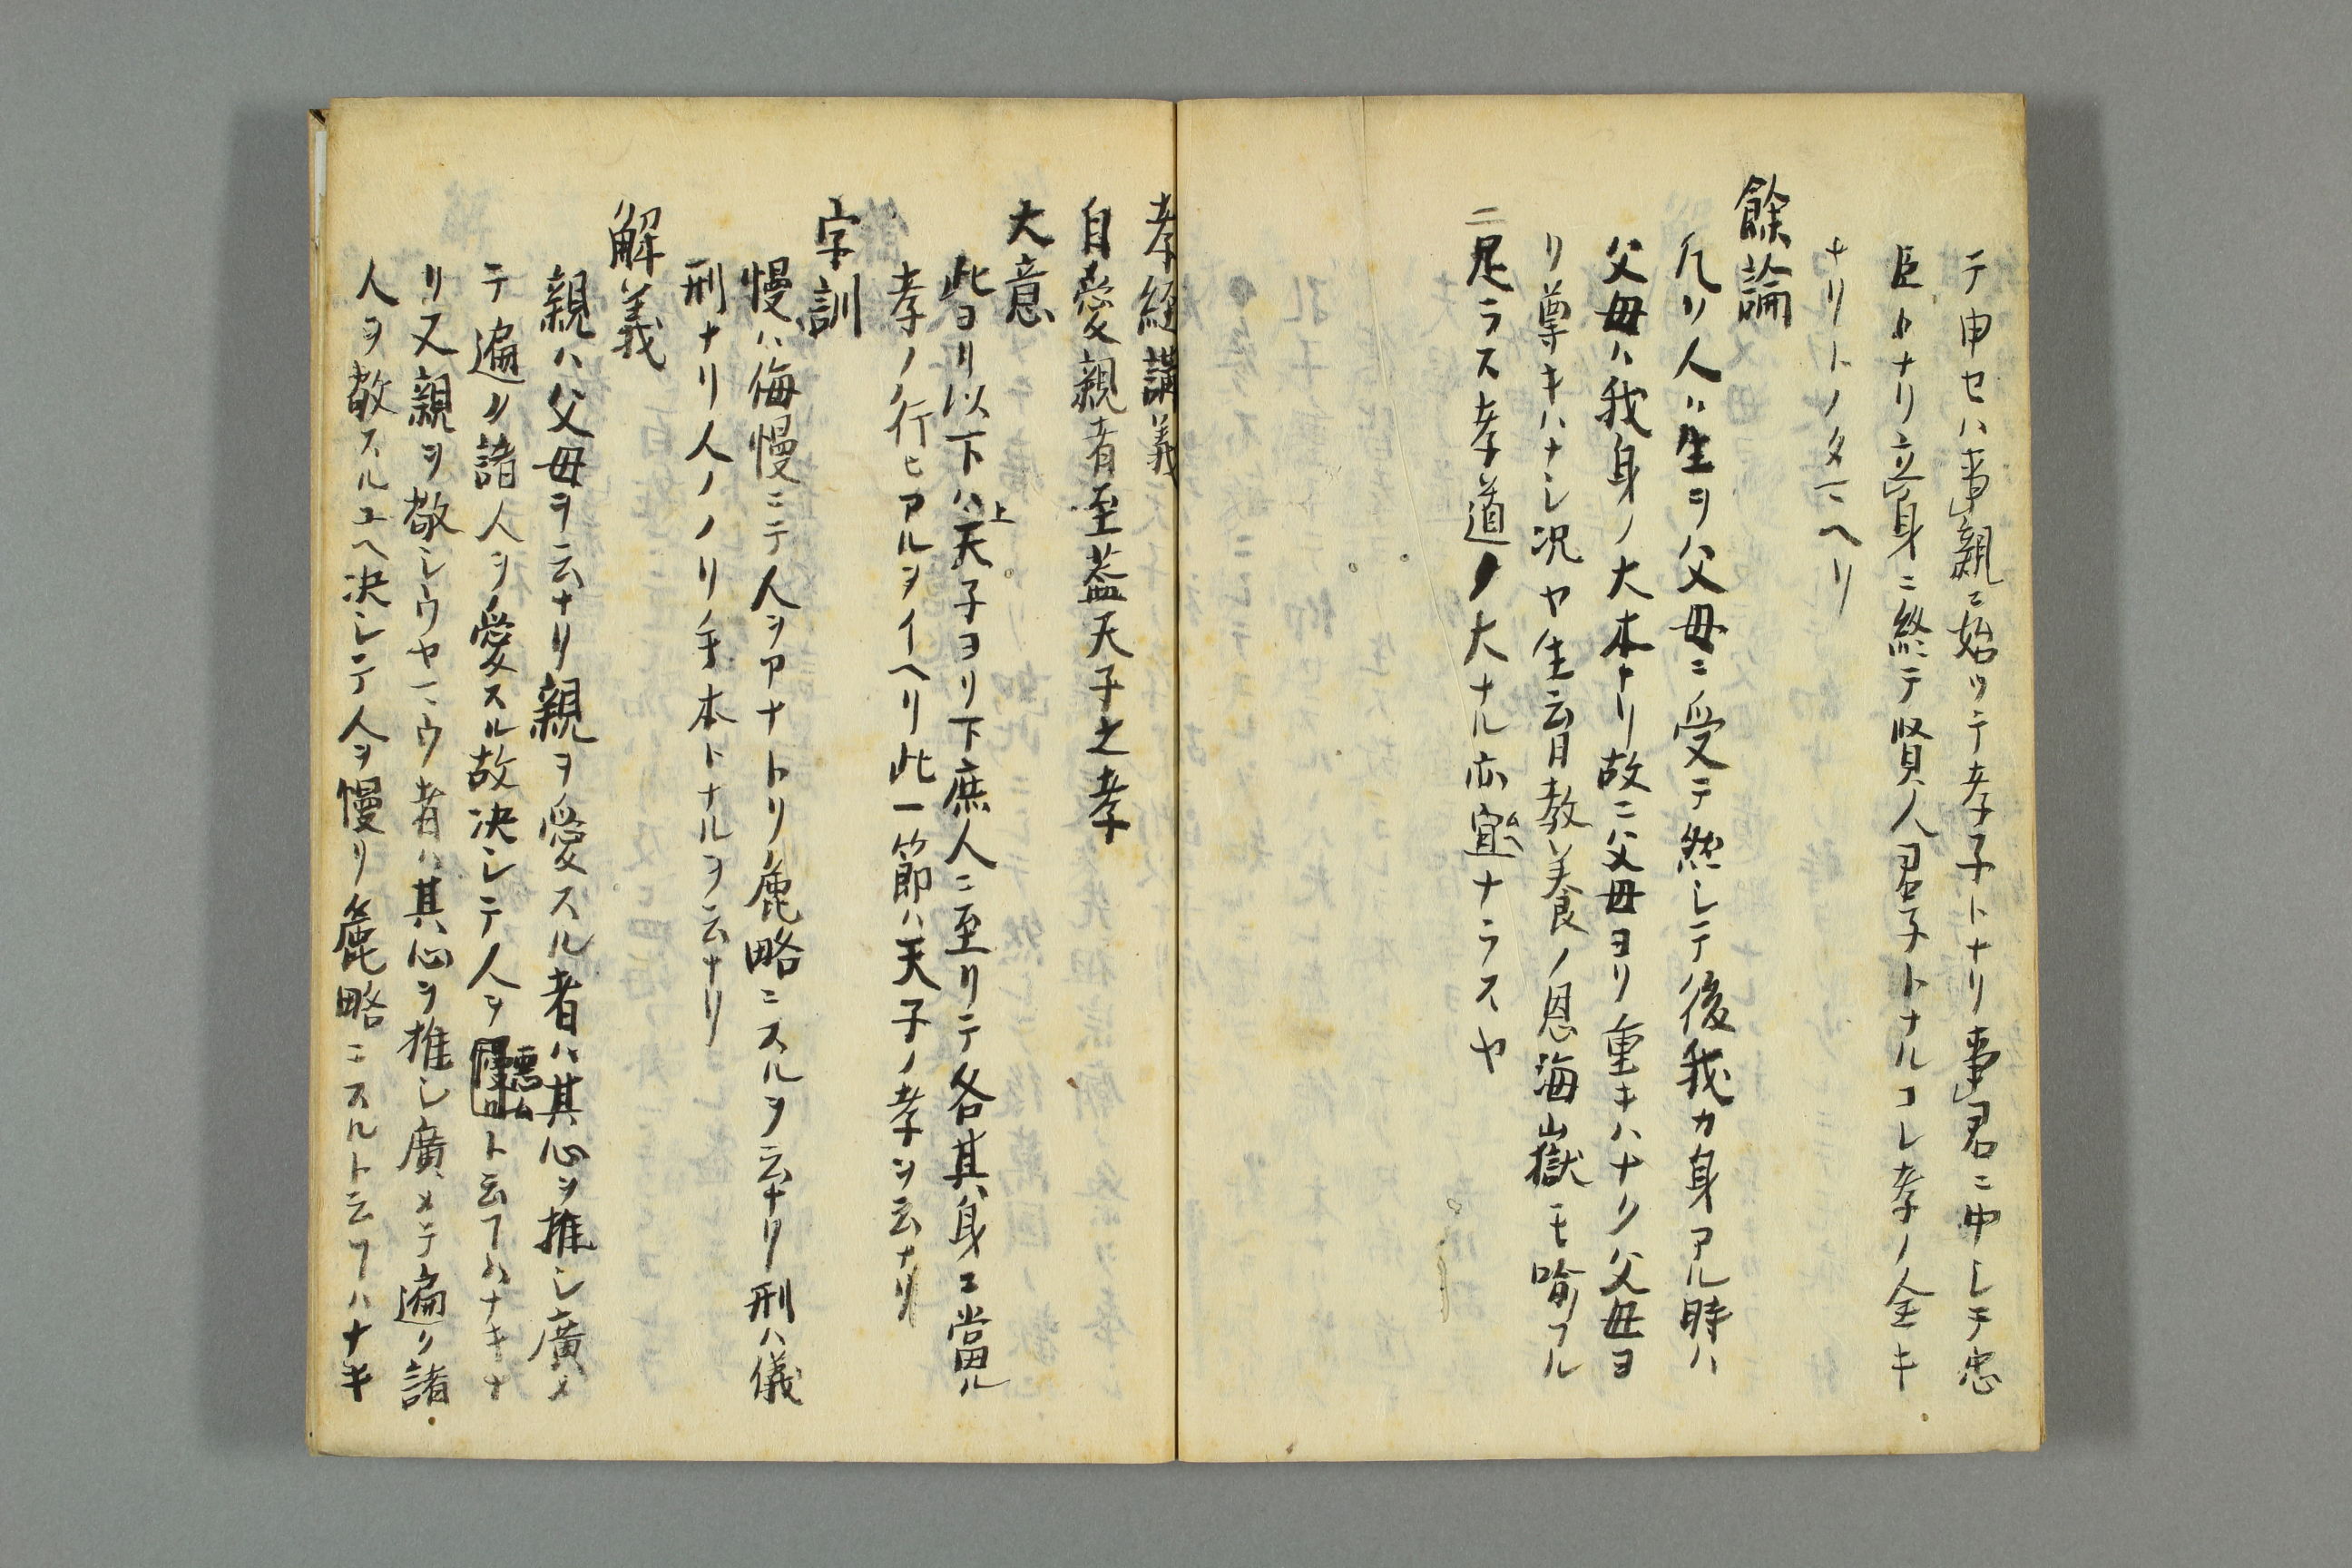 テ申セハ事親ニ始リテ孝子トナリ事君ニ中シテ忠
臣トナリ立身ニ終テ賢人君子トナルコレ幸ノ全キ
ナリトノタマヘリ
餘論
凡ソ人ハ生ヲ父母ニ受テ然シテ後我カ身アル時ハ
父母ハ我身ノ大本ナリ故ニ父母ヨリ重キハナク父母ヨ
リ尊キハナシ况ヤ生育教養ノ恩海嶽モ喻フル
ニ足ラス孝道ノ大ナル亦宜ムヘナラスヤ
孝經講義
自愛親者至蓋天子之孝
大意
此ヨリ以下ハ上天子ヨリ下庶人ニ至リテ各其身ニ當ル
孝ノ行ヒアルヲイヘリ此一節ハ天子ノ孝ヲ云ナリ
字訓
慢ハ侮慢ニテ人ヲアナトリ麁略ニスルヲ云ナリ刑ハ儀
刑ナリ人ノノリ手本トナルヲ云ナリ
解義
親ハ父母ヲ云ナリ親ヲ愛スル者ハ其心ヲ推シ廣メ
テ遍ク諸人ヲ愛スル故决シテ人ヲ惡ムト云フハナキナ
リ又親ヲ敬シウヤマウ者ハ其心ヲ推シ廣メテ遍ク諸
人ヲ敬スルユヘ决シテ人ヲ慢リ麁略ニスルト云フハナキ